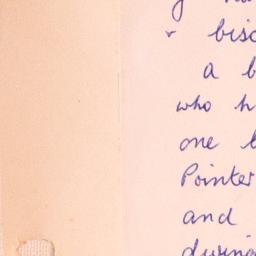 y
& bisc
a b
who h
one l
Pointer
and
during